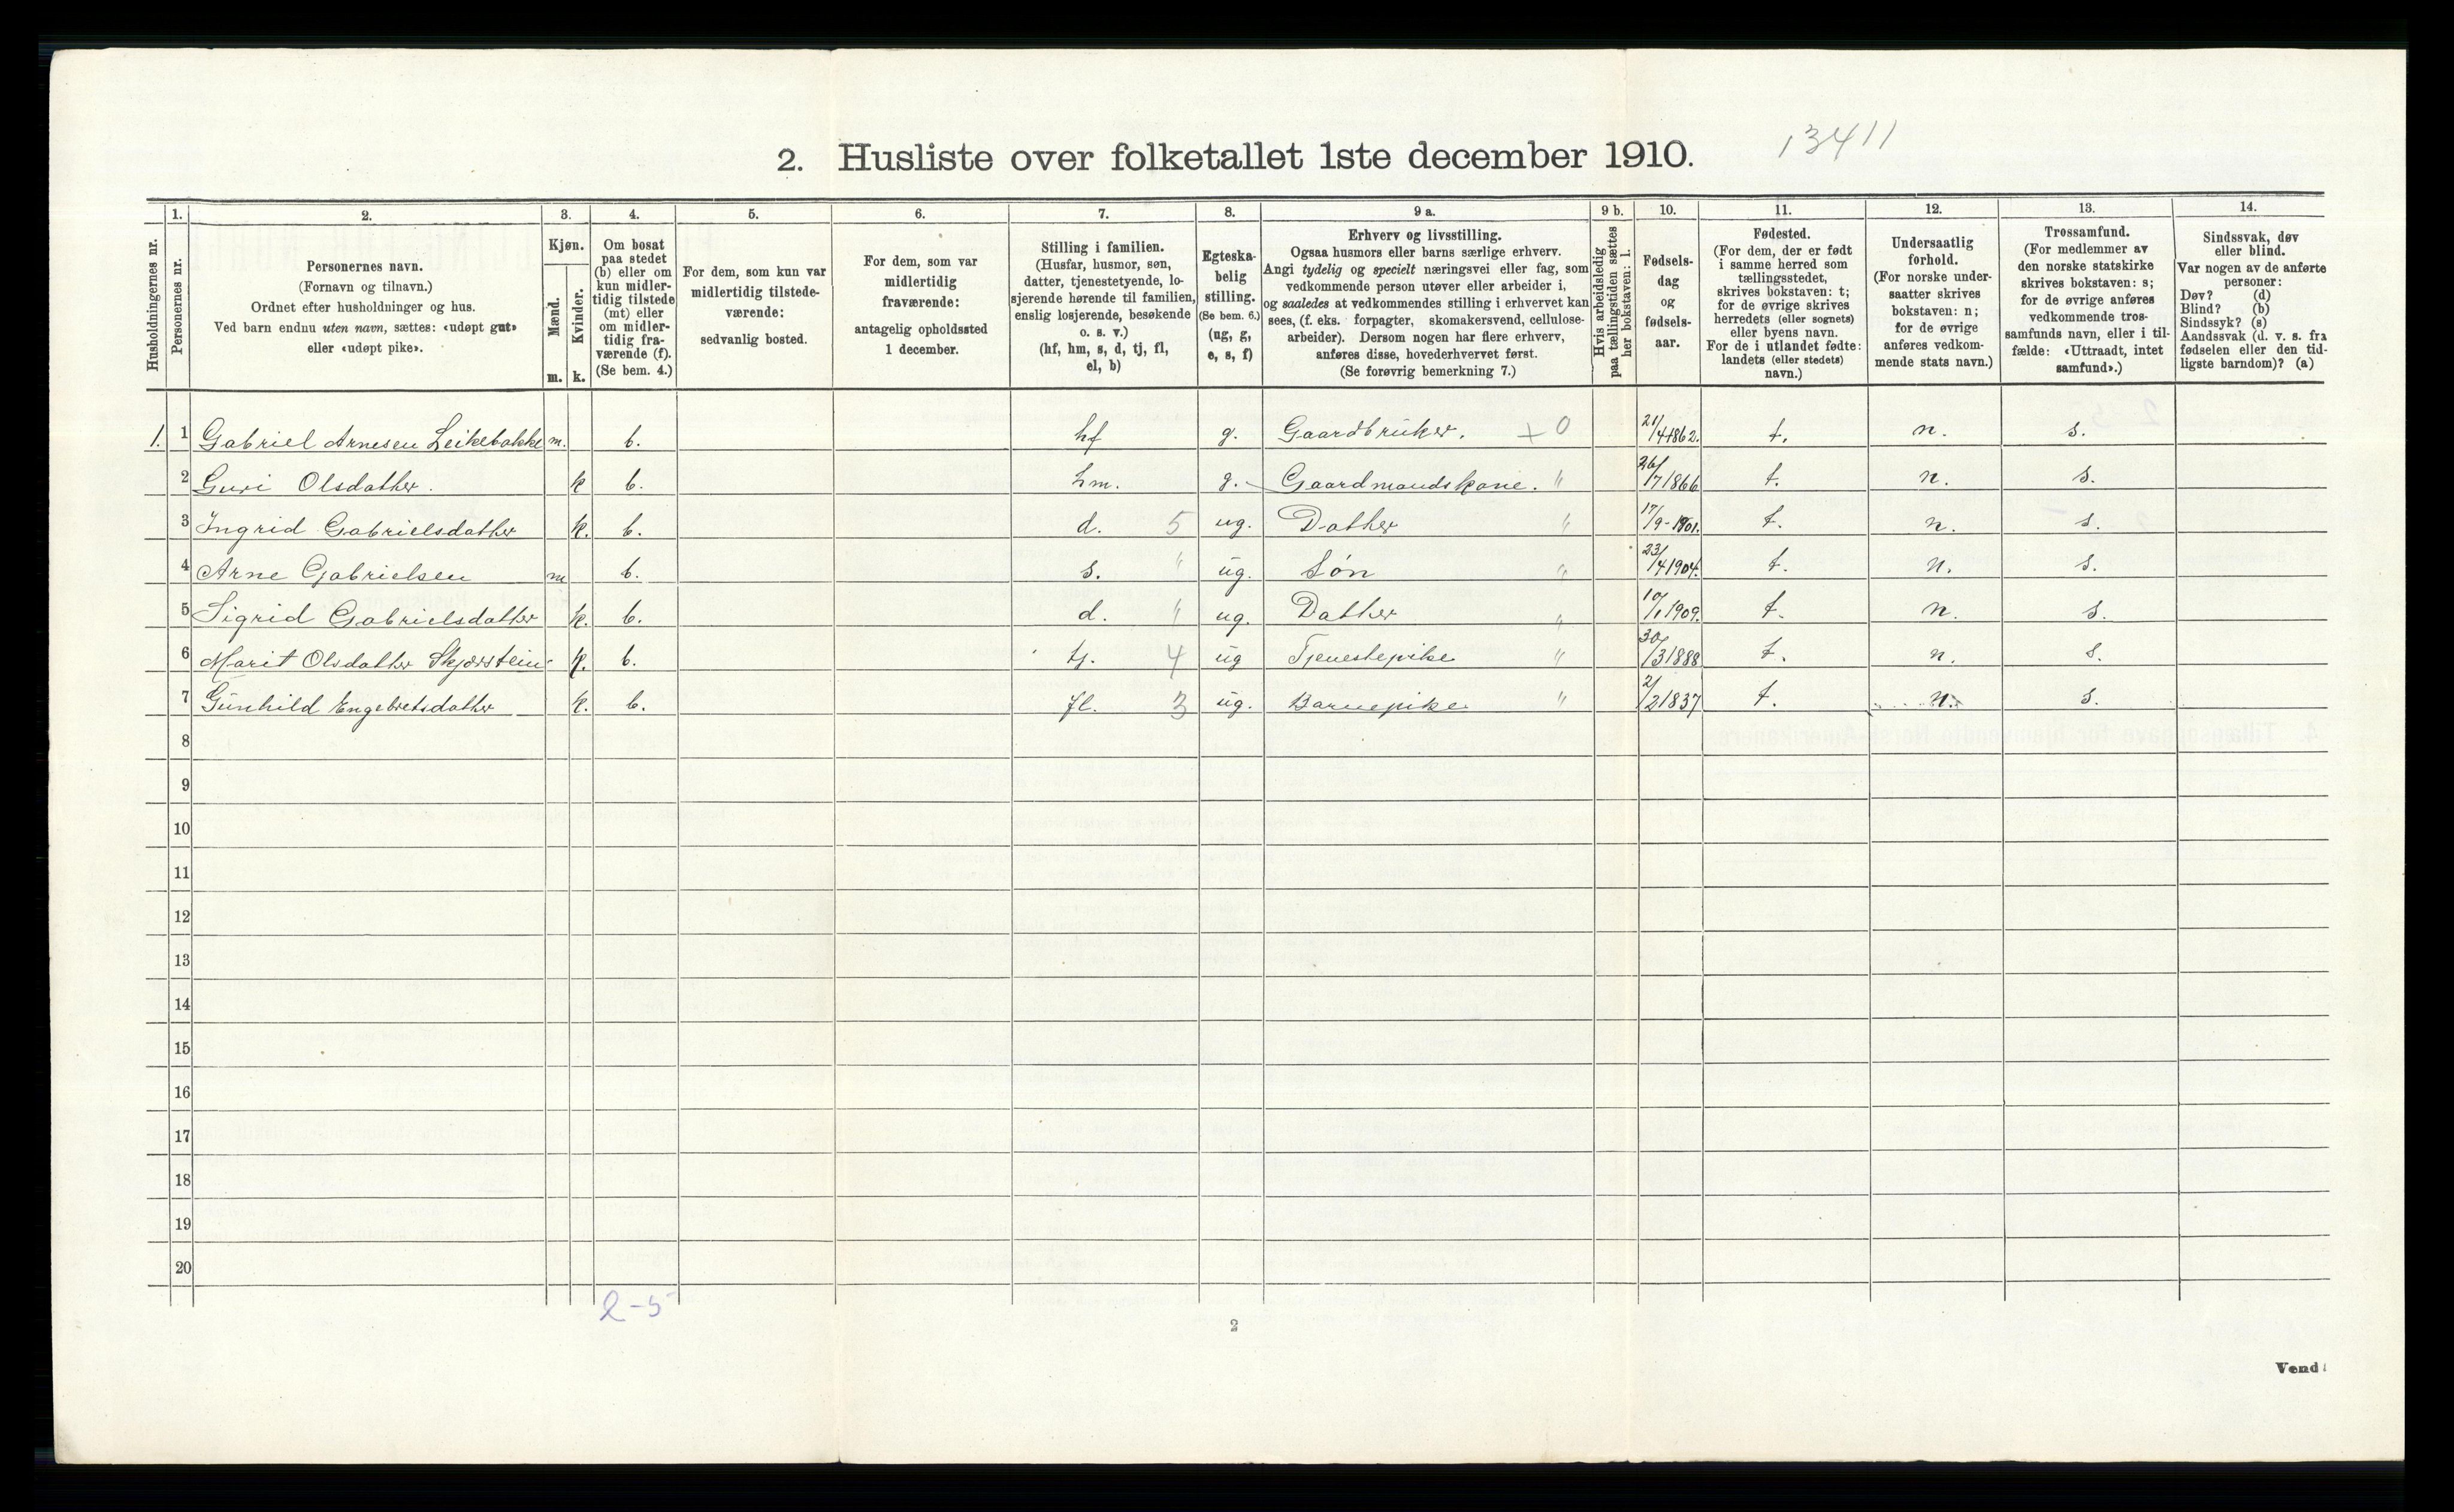 13411
2. Husliste over folketallet 1ste december 1910.
Husholdningernes nr.
1. Personernes nr.
2. Personernes navn.
(Fornavn og tilnavn.)
Ordnet efter husholdninger og hus.
Ved barn endnu uten navn, sættes: «udøpt gut»
eller «udøpt pike».
3. Kjøn.
Mænd. m.
Kvinder. k.
4. Om bosat
paa stedet
(b) eller om
kun midler-
tidig tilstede
(mt) eller
om midler-
tidig fra-
værende (f).
(Se bem. 4.)
5. For dem, som kun var
midlertidig tilstede-
værende:
sedvanlig bosted.
6. For dem, som var
midlertidig
fraværende:
antagelig opholdssted
1 december.
7. Stilling i familien.
(Husfar, husmor, søn,
datter, tjenestetyende, lo-
sjerende hørende til familien,
enslig losjerende, besøkende
o. s. v.)
(hf, hm, s, d, tj, fl,
el, b)
8. Egteska-
belig
stilling.
(Se bem. 6.)
(ug, g,
e, s, f)
9 a. Erhverv og livsstilling.
Ogsaa husmors eller barns særlige erhverv.
Angi tydelig og specielt næringsvei eller fag, som
vedkommende person utøver eller arbeider i,
og saaledes at vedkommendes stilling i erhvervet kan
sees, (f. eks. forpagter, skomakersvend, cellulose-
arbeider). Dersom nogen har flere erhverv,
anføres disse, hovederhvervet først.
(Se forøvrig bemerkning 7.)
9 b. Hvis arbeidsledig
paa tællingstiden sættes
her bokstaven: l.
10. Fødsels-
dag
og
fødsels-
aar.
11. Fødested.
(For dem, der er født
i samme herred som
tællingsstedet,
skrives bokstaven: t;
for de øvrige skrives
herredets (eller sognets)
eller byens navn.
For de i utlandet fødte:
landets (eller stedets)
navn.)
12. Undersaatlig
forhold.
(For norske under-
saatter skrives
bokstaven: n;
for de øvrige
anføres vedkom-
mende stats navn.)
13. Trossamfund.
(For medlemmer av
den norske statskirke
skrives bokstaven: s;
for de øvrige anføres
vedkommende tros-
samfunds navn, eller i til-
fælde: «Uttraadt, intet
samfund».)
14. Sindssvak, døv
eller blind.
Var nogen av de anførte
personer:
Døv? (d)
Blind? (b)
Sindssyk? (s)
Aandssvak (d. v. s. fra
fødselen eller den tid-
ligste barndom)? (a)
1. 1 Gabriel Arnesen Leikebakke m. b. hf g. Gaardbruker. + 0 21/4 1862. t. n. s.
2 Guri Olsdatter. k b. hm. g. Gaardmandskone. " 26/7 1866 t. n. s.
3 Ingrid Gabrielsdatter k. b. d. 5 ug. Datter " 17/9-1901. t. n. s.
4 Arne Gabrielsen m b. s. " ug. Søn " 23/4 1904. t. n. s.
5 Sigrid Gabrielsdatter k. b. d. " ug. Datter " 10/1 1909. t. n. s.
6 Marit Olsdatter Skjerstein k. b. tj. 4 ug Tjenestepike " 30/3 1888 t. n. s.
7 Gunhild Engebretsdatter k. b. fl. 3 ug. Barnepike " 2/2 1837 t. n. s.
8
9
10
11
12
13
14
15
16
17
18
19
20
2-5
2
Vend!